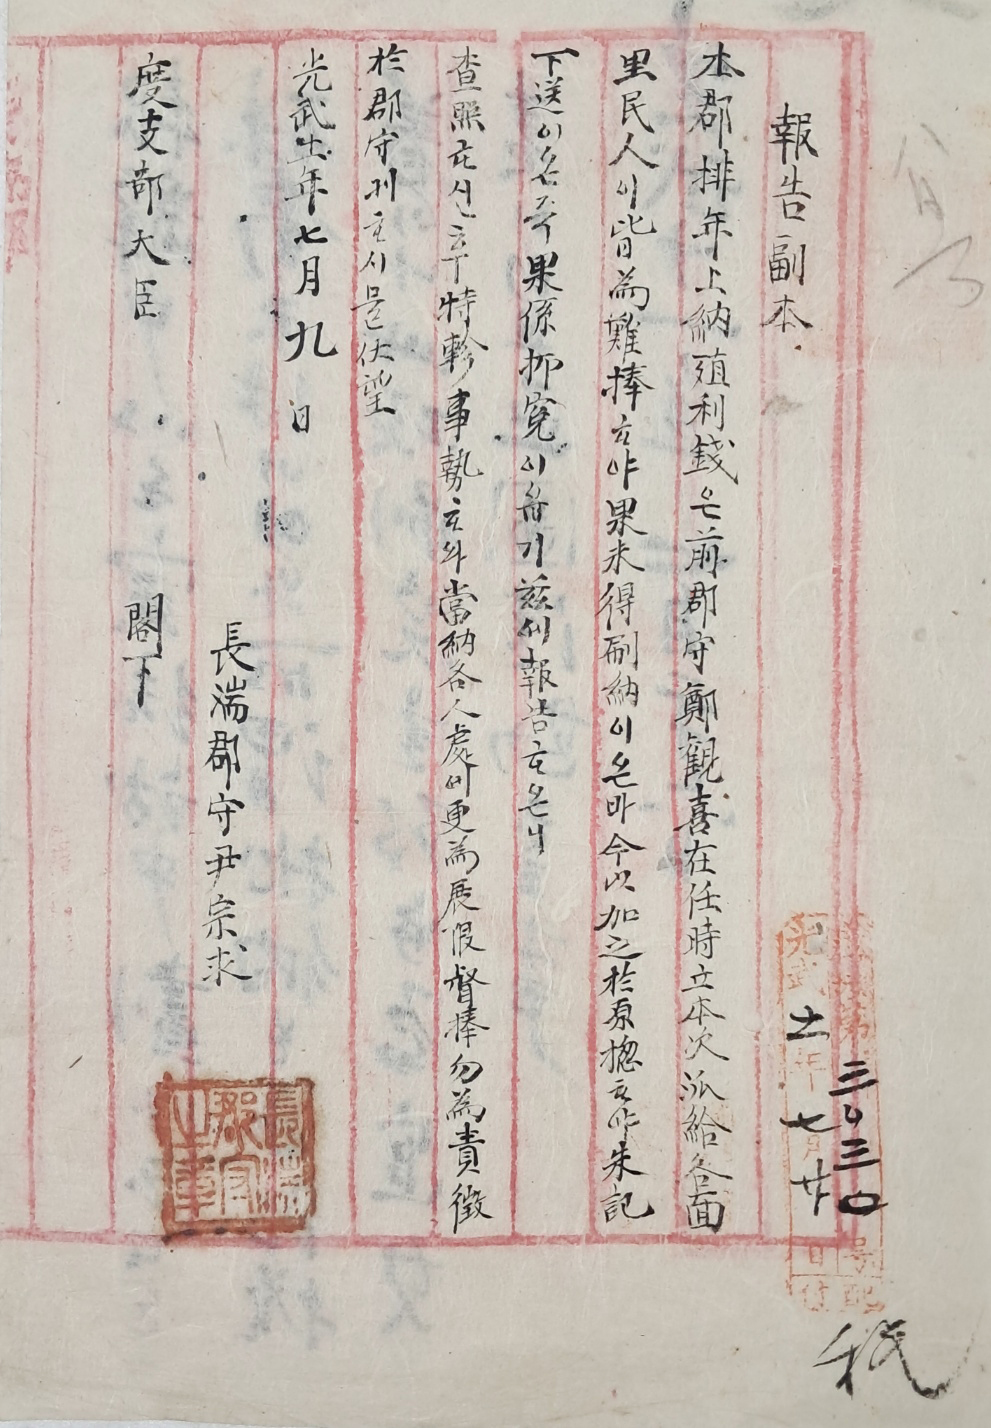 報告副本
本郡排年上納殖利錢은前郡守鄭觀喜在任時立本次派給各面
里民人이皆為難捧하야果未得刷納이온바今以加之於原摠하야朱記
下送이온즉果係抑寃이옵기玆에報告하오니
查照하신후特軫事勢하와當納各人處에更為展假督捧勿為責徵
於郡守케하시믈伏望
光武十一年七月九日
長湍郡守尹宗求
度支部大臣 閣下
光武十一年七月廿日付
三四三〇号
長湍郡守之章